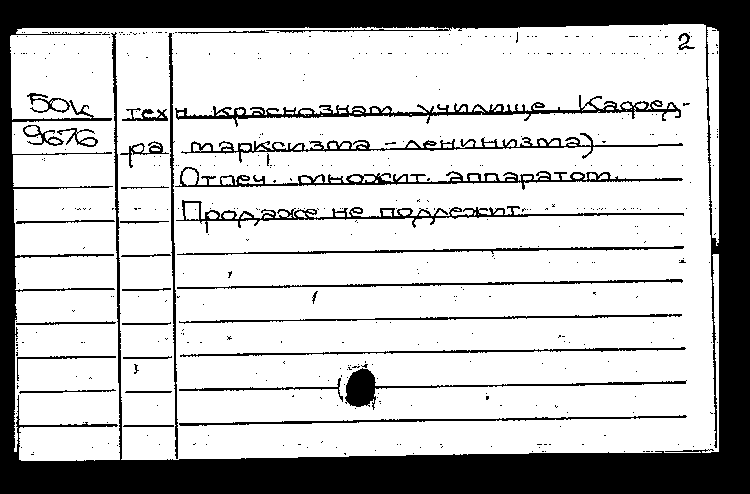 2
50к техн. краснознам. училище. Кафед-
9676 ра марксизма-ленинизма).
Отпеч. множит. аппаратом.
Продаже не подлежит.